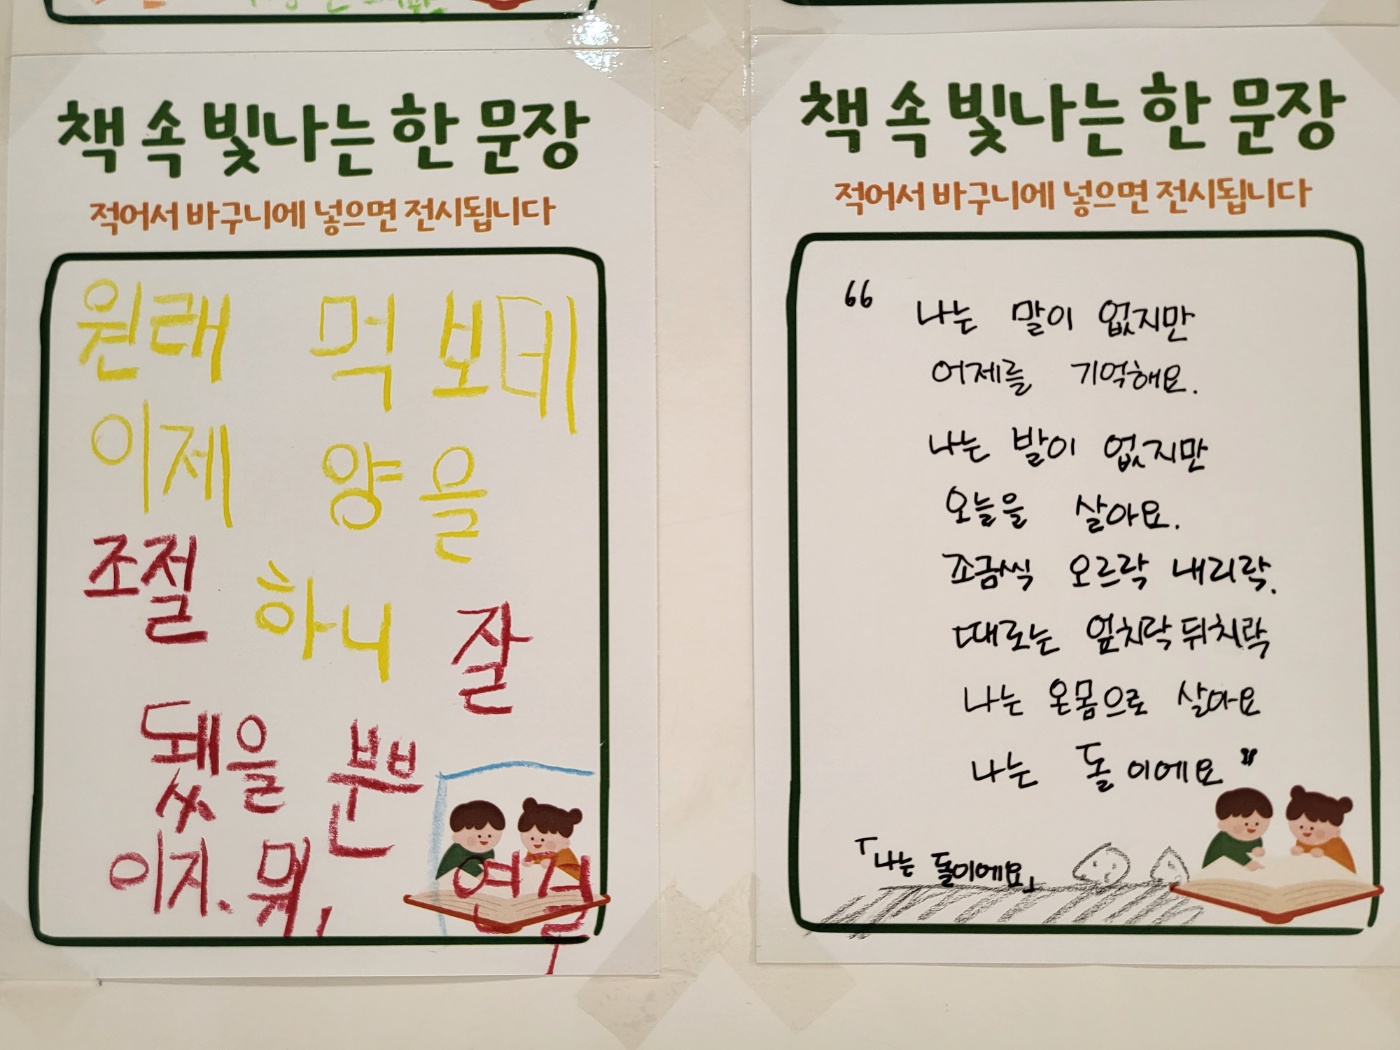 책 속 빛나는 한 문장
적어서 바구니에 넣으면 전시됩니다
원래 먹보데
이제 양을
조절 하니 잘
됐을 뿐
이지. 뭐,
책 속 빛나는 한 문장
적어서 바구니에 넣으면 전시됩니다
“ 나는 말이 없지만
어제를 기억해요.
나는 발이 없지만
오늘을 살아요.
조금씩 오르락 내리락.
때로는 앞치락 뒤치락
나는 온몸으로 살아요
나는 돌이에요 ”
「나는 돌이에요」